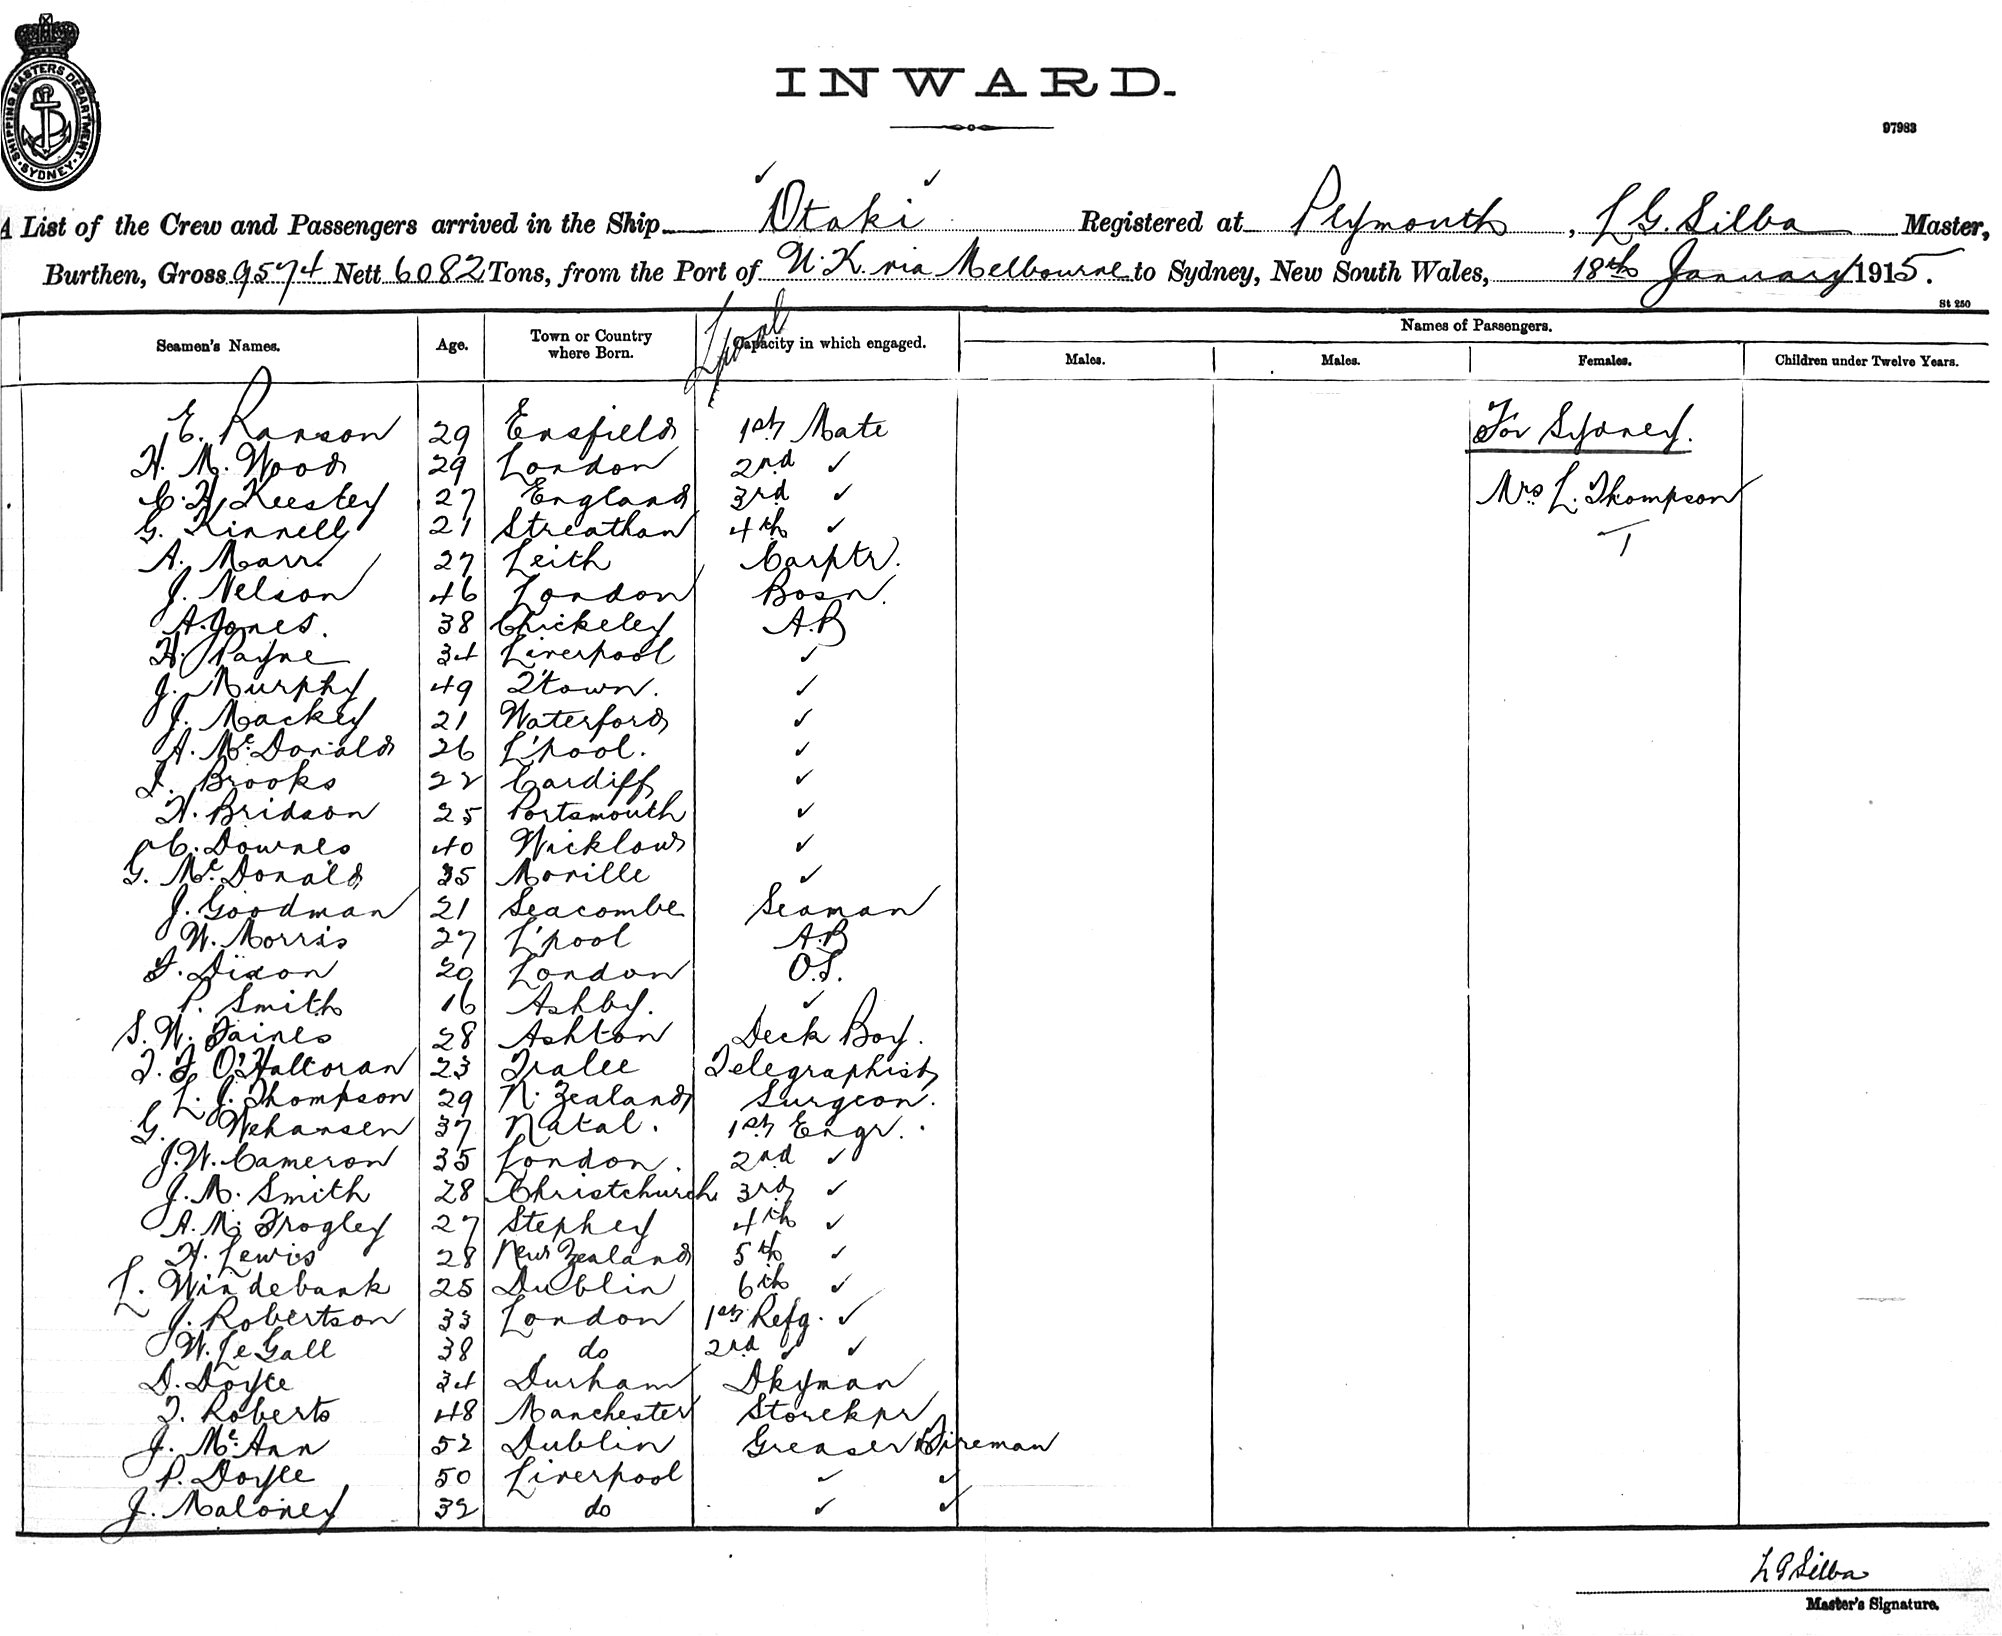 SHIPPING MASTERS DEPARTMENT · SYDNEY ·
INWARD.
97983
A List of the Crew and Passengers arrived in the Ship Otaki Registered at Plymouth, L G. Silba Master,
Burthen, Gross 9574 Nett 6082 Tons, from the Port of U.K. via Melbourne to Sydney, New South Wales, 18th January 1915.
St 250
L'pool
Seamen's Names. Age. Town or Country where Born. Capacity in which engaged. Names of Passengers.
Males. Males. Females. Children under Twelve Years.
E. Ranson 29 Ensfield 1st Mate For Sydney.
H. M. Wood 29 London 2nd ✓
C. H. Keesley 27 England 3rd ✓ Mrs L. Thompson
G. Kinnell 21 Streathan 4th ✓ T
A. Marr. 27 Leith Carptr.
J. Nelson 46 London Bosn.
A. Jones. 38 Chickeley A.B
H. Payne 34 Liverpool ✓
J. Murphy 49 Q'town. ✓
J. Mackey 21 Waterford ✓
A. McDonald 26 L'pool. ✓
J. Brooks 22 Cardiff ✓
H. Bridson 25 Portsmouth ✓
C. Downes 40 Wicklow ✓
G. McDonald 35 Moville ✓
J. Goodman 21 Seacombe Seaman
W. Morris 27 L'pool A.B
F. Dixon 20 London O.S.
P. Smith 16 Ashby. ✓
S. W. Faines 28 Ashton Deck Boy.
T. F O'Halloran 23 Tralee Telegraphist
L. J. Thompson 29 N. Zealand Surgeon.
G. Wehansen 37 Natal. 1st Engr.
J. W. Cameron 35 London. 2nd ✓
J. M. Smith 28 Christchurch 3rd ✓
A. M. Frogley 27 Stephey 4th ✓
H. Lewis 28 New Zealand 5th ✓
L. Windebank 25 Dublin 6th ✓
J. Robertson 33 London 1st Refg. ✓
W. Le Gall 38 do 2nd ✓ ✓
D. Doyle 34 Durham Dkyman
T. Roberts 48 Manchester Storekpr
J. McAnn 52 Dublin Greaser & Fireman
P. Doyle 50 Liverpool ✓ ✓
J. Maloney 32 do ✓ ✓
L G Silba
Master's Signature.